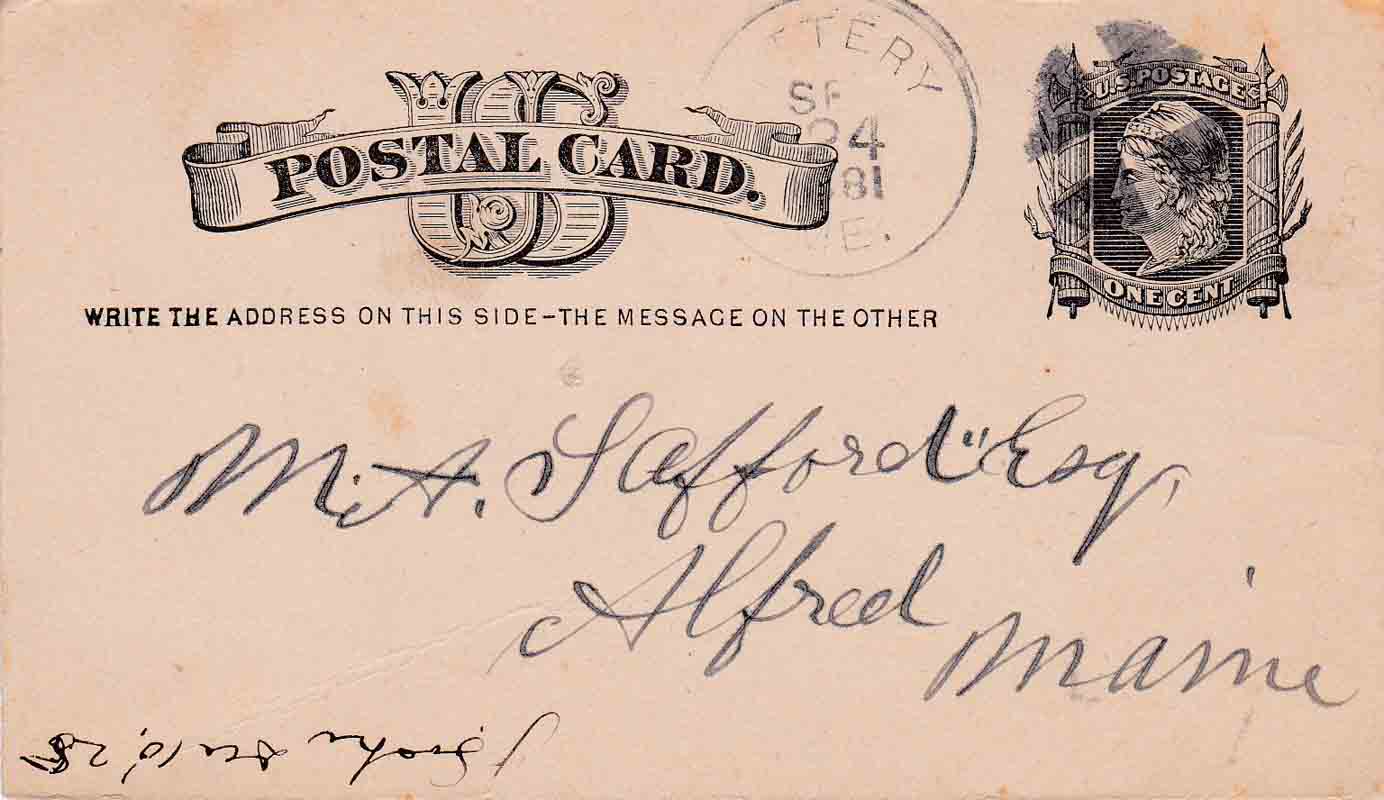 US
POSTAL CARD.
TTERY
SE
24
81
ME.
U.S. POSTAGE
ONE CENT
WRITE THE ADDRESS ON THIS SIDE-THE MESSAGE ON THE OTHER
M. A. Safford" Esq,
Alfred
Maine